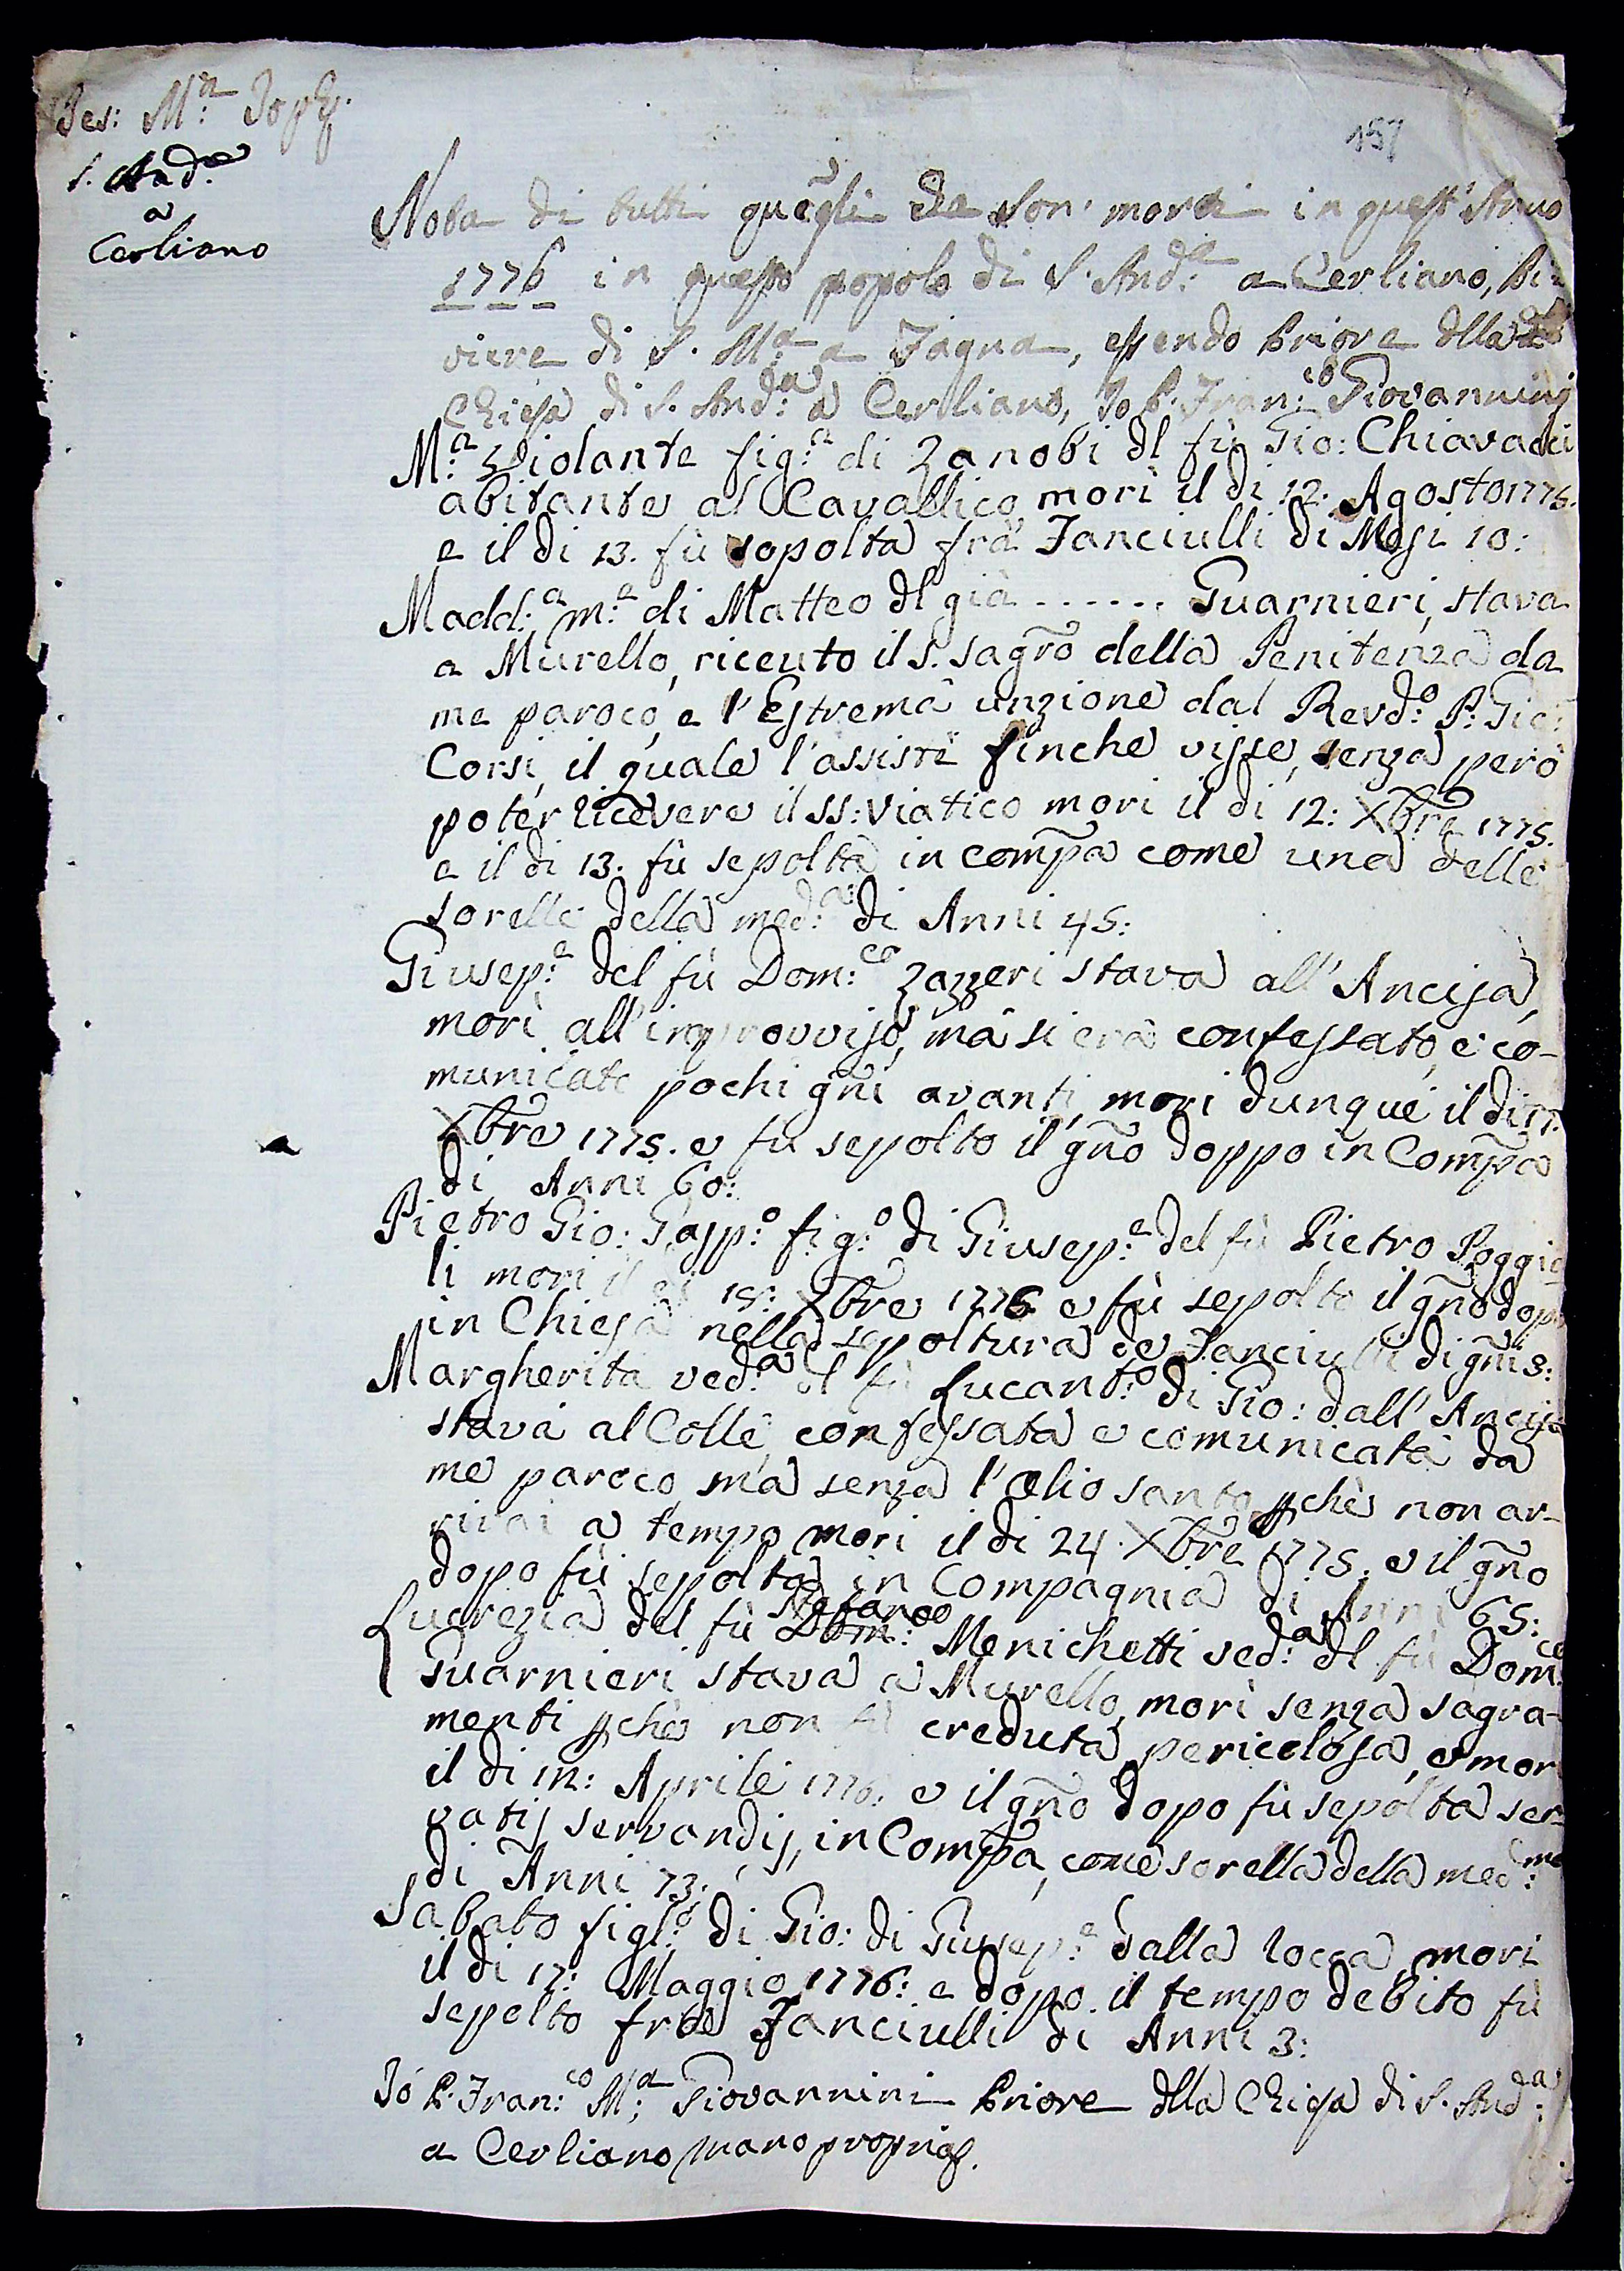 Jes: M:a Josph.
S. And:a
a
Cerliano
157
Nota di tutti quegli che son' morti in quest'Anno
1776 in questo popolo di S. And:a a Cerliano, Pi:
viere di S. M:a a Fagna, essendo Priore dlla d:a
Chiesa di S. And:a a Cerliano, Io P. Fran:co Giovannini
M:a Violante fig:a di Zanobi dl fù Gio: Chiavacci
abitante al Cavallico morì il dì 12. Agosto 1775.
e il dì 13. fù sopolta fra Fanciulli di Mesi 10:
Madd:a m:e di Matteo dl già ...... Guarnieri, stava
a Murello, riceuto il S. Sagr̃o della Penitenza da
me paroco, e l'Estrema unzione dal Revd:o P: Gio:
Corsi, il quale l'assistì finche visse, senza però
poter ricevere il SS: Viatico morì il dì 12: Xbre 1775.
e il dì 13. fù sepolta in comp̃a come una delle
sorelle della med:a di Anni 45:
Giusep:e del fù Dom:co Zazzeri stava all'Ancisa,
morì all'improvviso, ma si era confessato, e co-
municato pochi gñi avanti, morì dunque il dì 17.
Xbre 1775. e fu sepolto il gño doppo in Comp̃a
di Anni 60:
Pietro Gio: Gasp:o fig:o di Giusep:e del fù Pietro Poggio
li morì il dì 18: Xbre 1776 e fù sepolto il gño dopo
in Chiesa nella sepoltura de Fanciulli di gñi 8:
Margherita ved:a dl fù Lucant:o di Gio: dall'Ancisa
stava al Colle confessata e comunicata da
me paroco ma senza l'Olio santo pchè non ar-
rivai a tempo morì il dì 24. Xbre 1775. e il gño
dopo fù sepolta in Compagnia di Anni 65:
Lucrezia del fù Dom:co Stefano Menichetti ved:a dl fù Dom:co
Guarnieri stava a Murello, morì senza sagra-
menti pchè non fù creduta pericolosa, e morì
il dì 12: Aprile 1776: e il gño dopo fù sepolta ser-
vatis servandis, in Comp̃a, come sorella della med:ma
di Anni 73:
Sabato figl:o di Gio: di Giusep:e dalla Rocca, morì
il dì 17: Maggio 1776: e dopo il tempo debito fù
sepolto fra Fanciulli di Anni 3:
Io P: Fran:co M:a Giovannini Priore dlla Chiesa di S. And:a
a Cerliano mano propria.